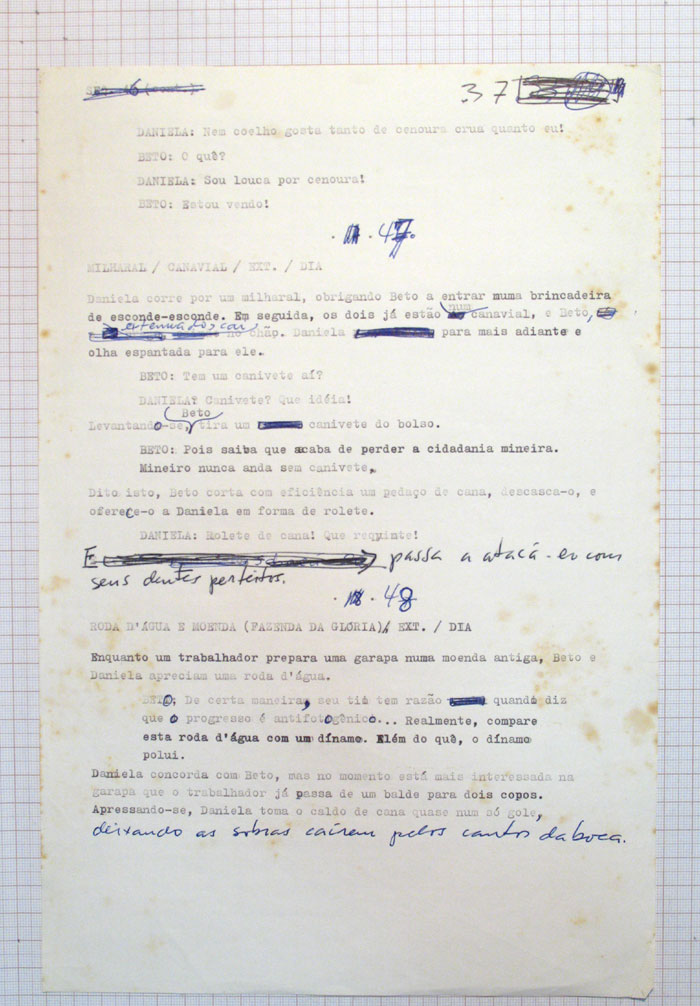 37
DANIELA: Nem coelho gosta tanto de cenoura crua quanto eu!
BETO: O quê?
DANIELA: Sou louca por cenoura!
BETO: Estou vendo!
47.
MILHARAL / CANAVIAL / EXT. / DIA
Daniela corre por um milharal, obrigando Beto a entrar numa brincadeira
de esconde-esconde. Em seguida, os dois já estão num canavial, e Beto,
extenuado, cai no chão. Daniela para mais adiante e
olha espantada para ele.
BETO: Tem um canivete aí?
DANIELA: Canivete? Que idéia!
Levantando-se, Beto tira um canivete do bolso.
BETO: Pois saiba que acaba de perder a cidadania mineira.
Mineiro nunca anda sem canivete.
Dito isto, Beto corta com eficiência um pedaço de cana, descasca-o, e
oferece-o a Daniela em forma de rolete.
DANIELA: Rolete de cana! Que requinte!
E passa a atacá-lo com
seus dentes perfeitos.
48
RODA D'ÁGUA E MOENDA (FAZENDA DA GLÓRIA)/ EXT. / DIA
Enquanto um trabalhador prepara uma garapa numa moenda antiga, Beto e
Daniela apreciam uma roda d'água.
BETO: De certa maneira, seu tio tem razão quando diz
que o progresso é antifotogênico... Realmente, compare
esta roda d'água com um dínamo. Além do quê, o dínamo
polui.
Daniela concorda com Beto, mas no momento está mais interessada na
garapa que o trabalhador já passa de um balde para dois copos.
Apressando-se, Daniela toma o caldo de cana quase num só gole,
deixando as sobras caírem pelos cantos da boca.